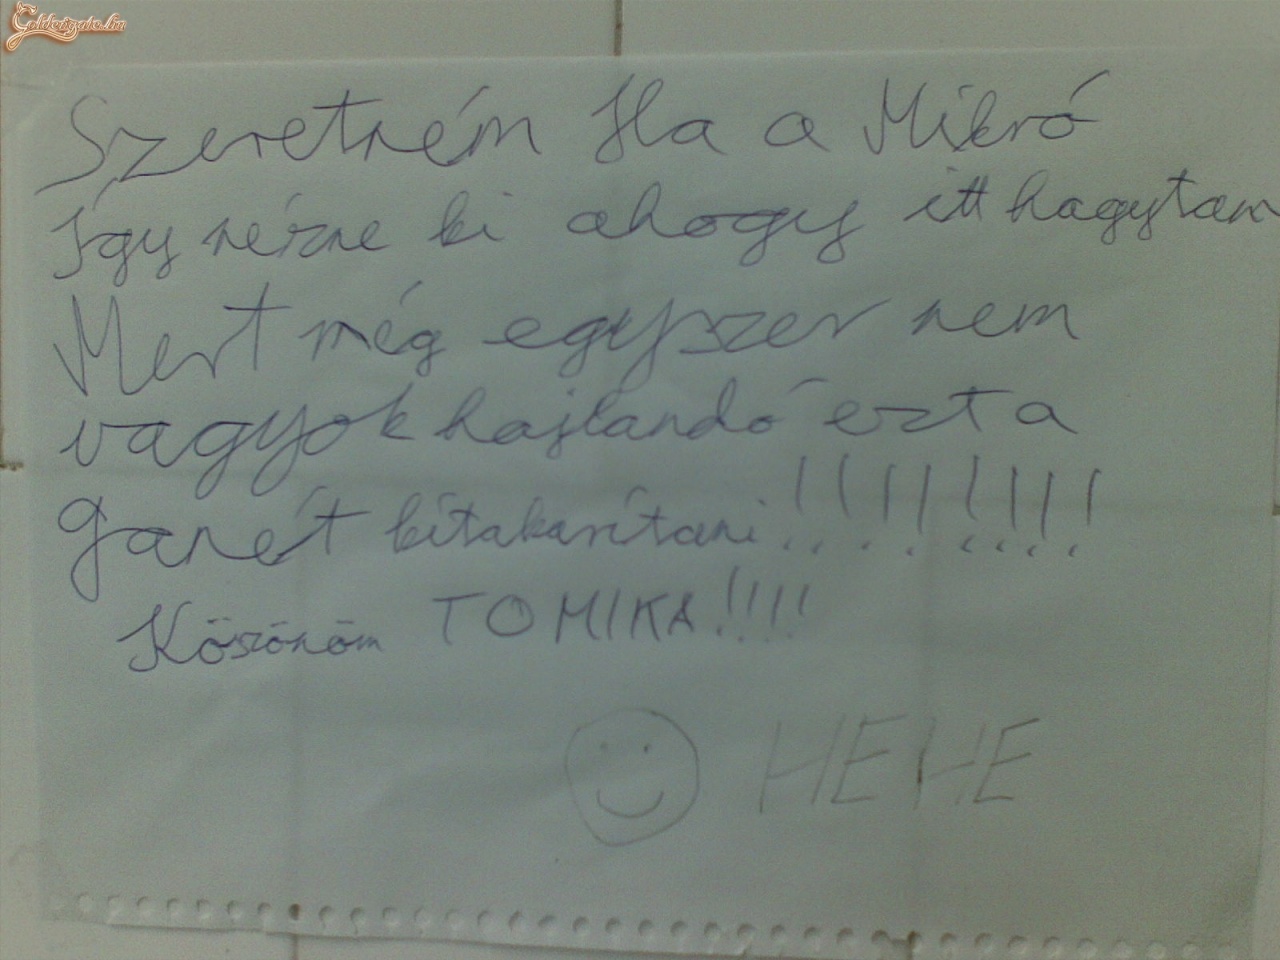 Goldengate.hu
Szeretném Ha a Mikró
Így nézne ki ahogy itt hagytam
Mert még egyszer nem
vagyok hajlandó ezt a
ganét kitakarítani!!!!!!!!
Köszönöm TOMIKA!!!!
HEHE